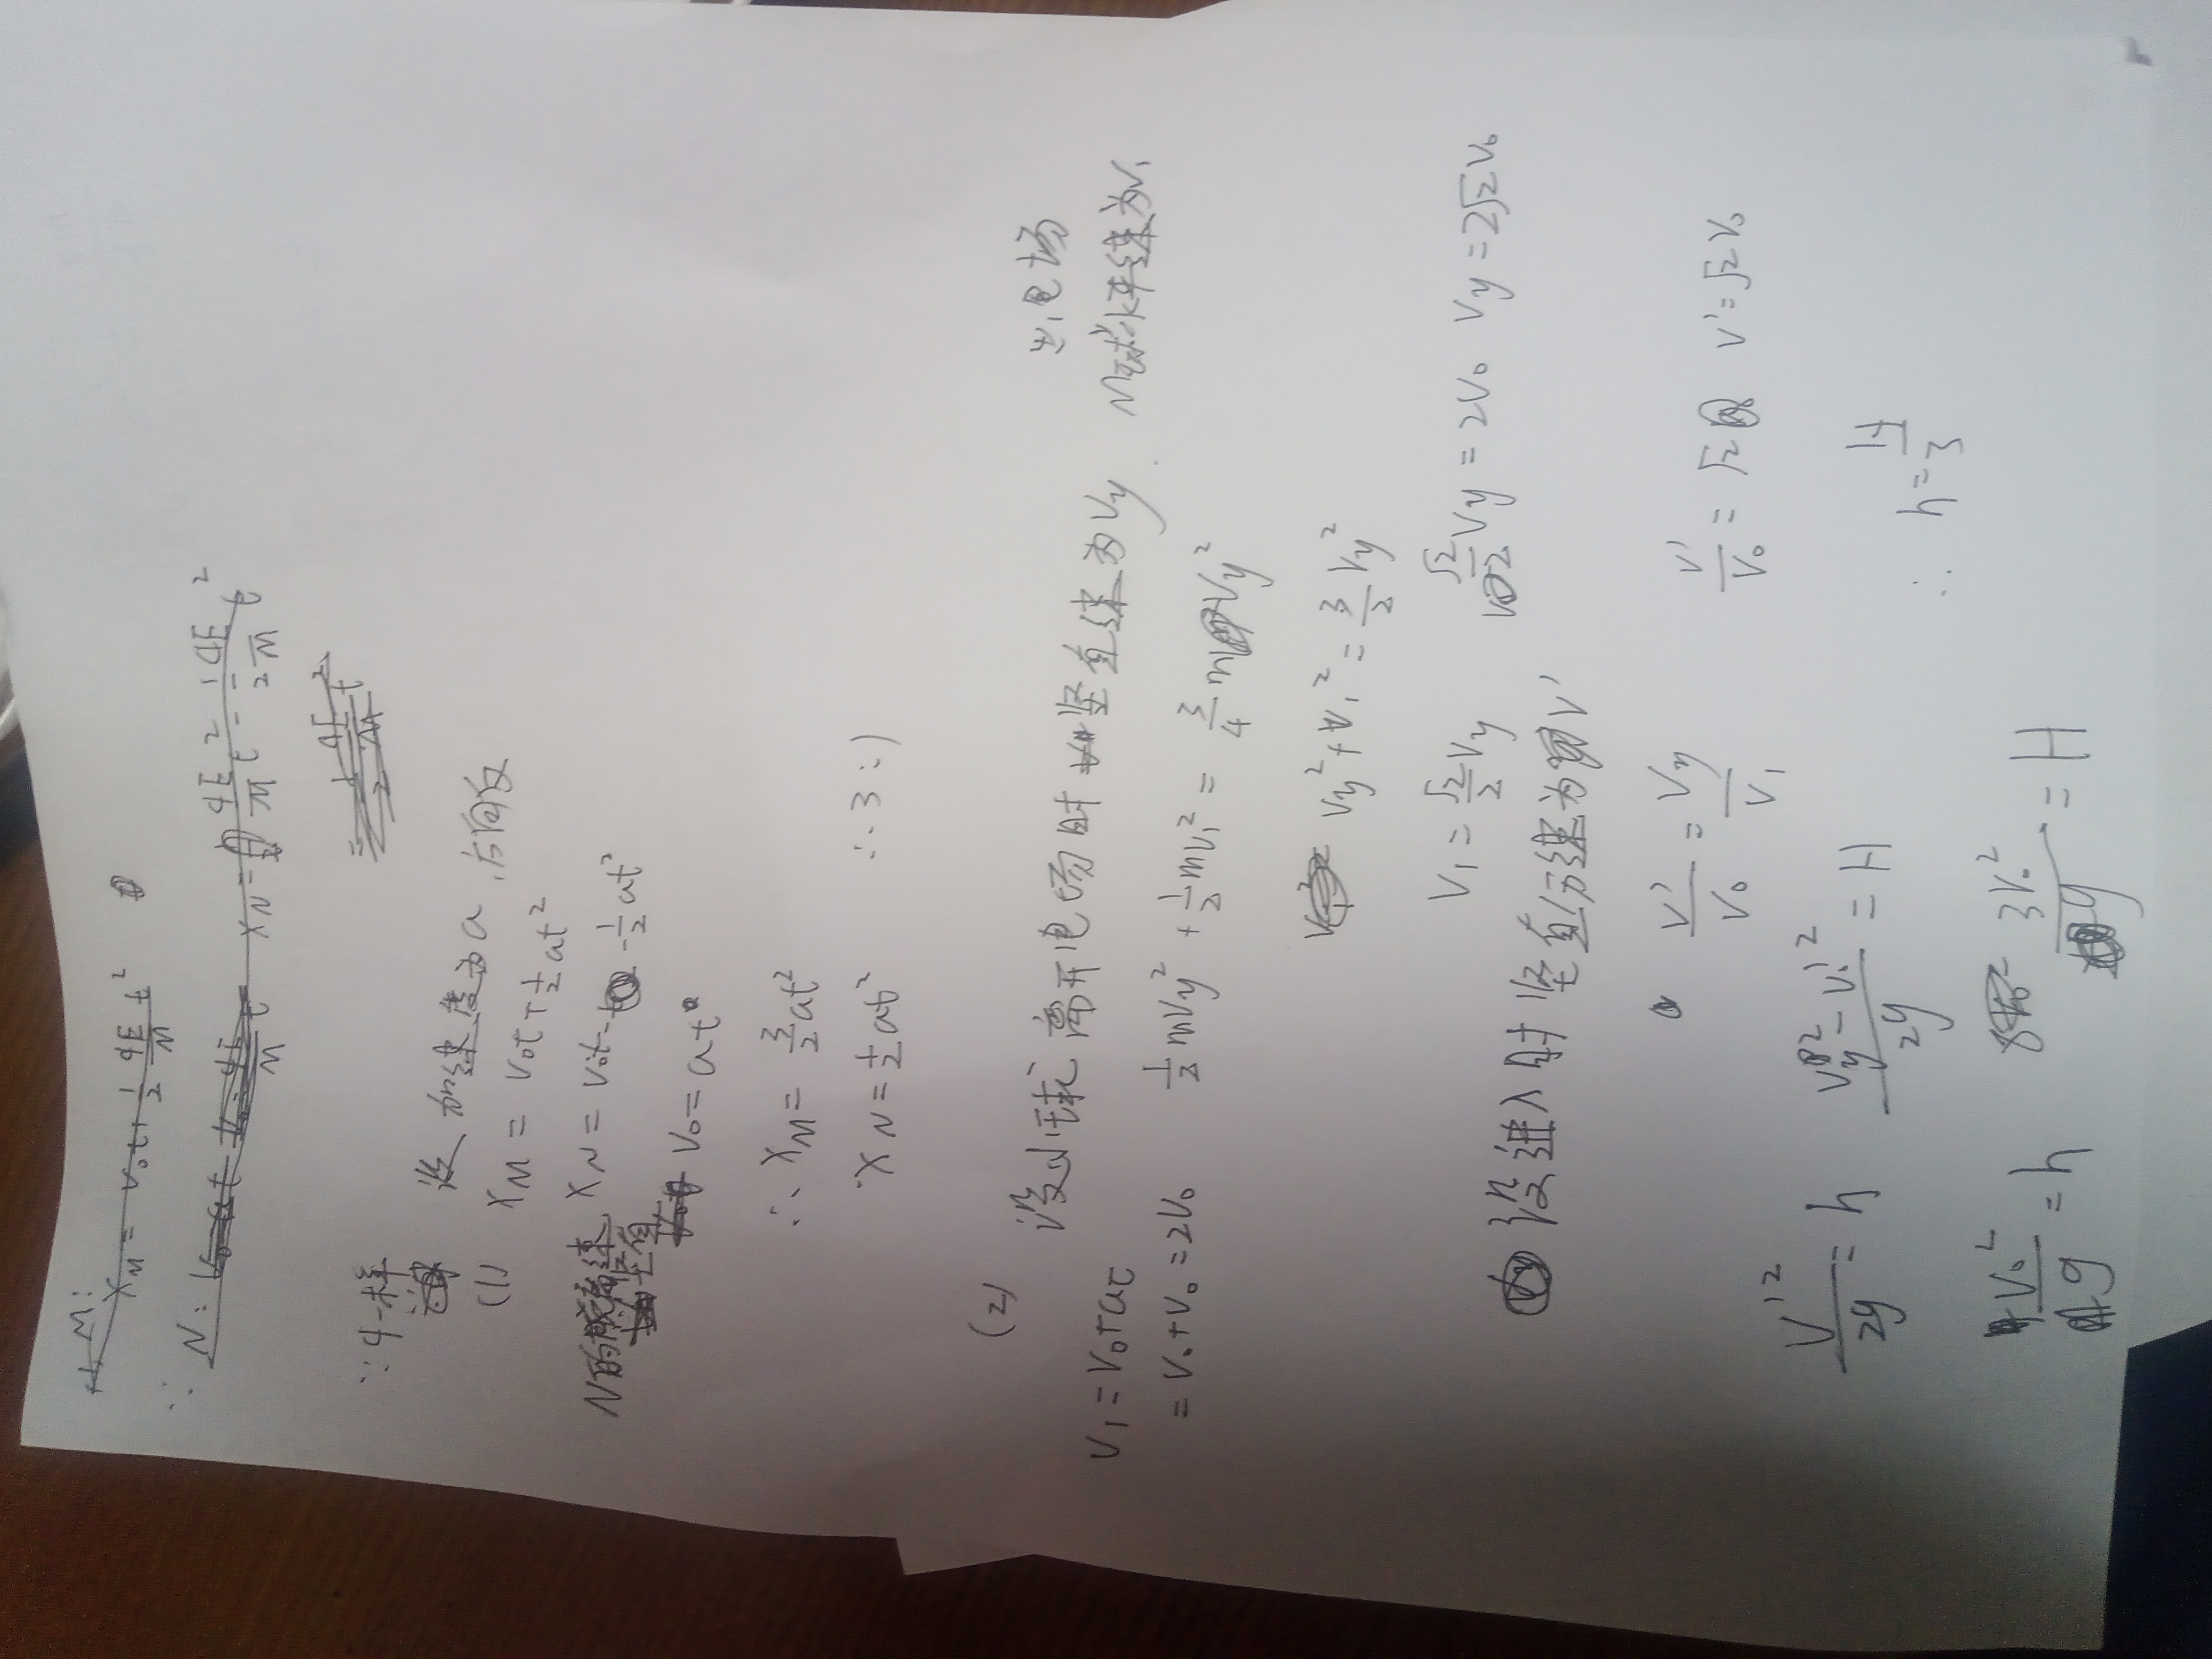 M:
x_M = v₀t + 1/2 qE/M t²
∴ N: v₀
x_N = qE/M t² - 1/2 qE/M t²
= 1/2 qE/M t²
∵ q一样
设加速度为a,方向反
(1) x_M = v₀t + 1/2 at²
N的减 速 x_N = v₀t - 1/2 at²
竖直 v₀ = at
∴ x_M = 3/2 at²
x_N = 1/2 at²
∴ 3:1
(2) 设小球离开电场时 竖直速为Vy. M球水平速为V₁
出电场
V₁ = V₀ + at
= V₀ + V₀ = 2V₀
1/2 mVy² + 1/2 mV₁² = 3/4 mVy²
Vy² + V₁² = 3/2 Vy²
V₁ = √2/2 Vy
√2/2 Vy = 2V₀ Vy = 2√2V₀
设进入时竖直分速为V'
V'/V₀ = Vy/V₁
V'/V₀ = √2 V' = √2V₀
V'²/2g = h
(Vy² - V'²)/2g = H
V₀²/g = h
3V₀²/g = H
∴ h = H/3